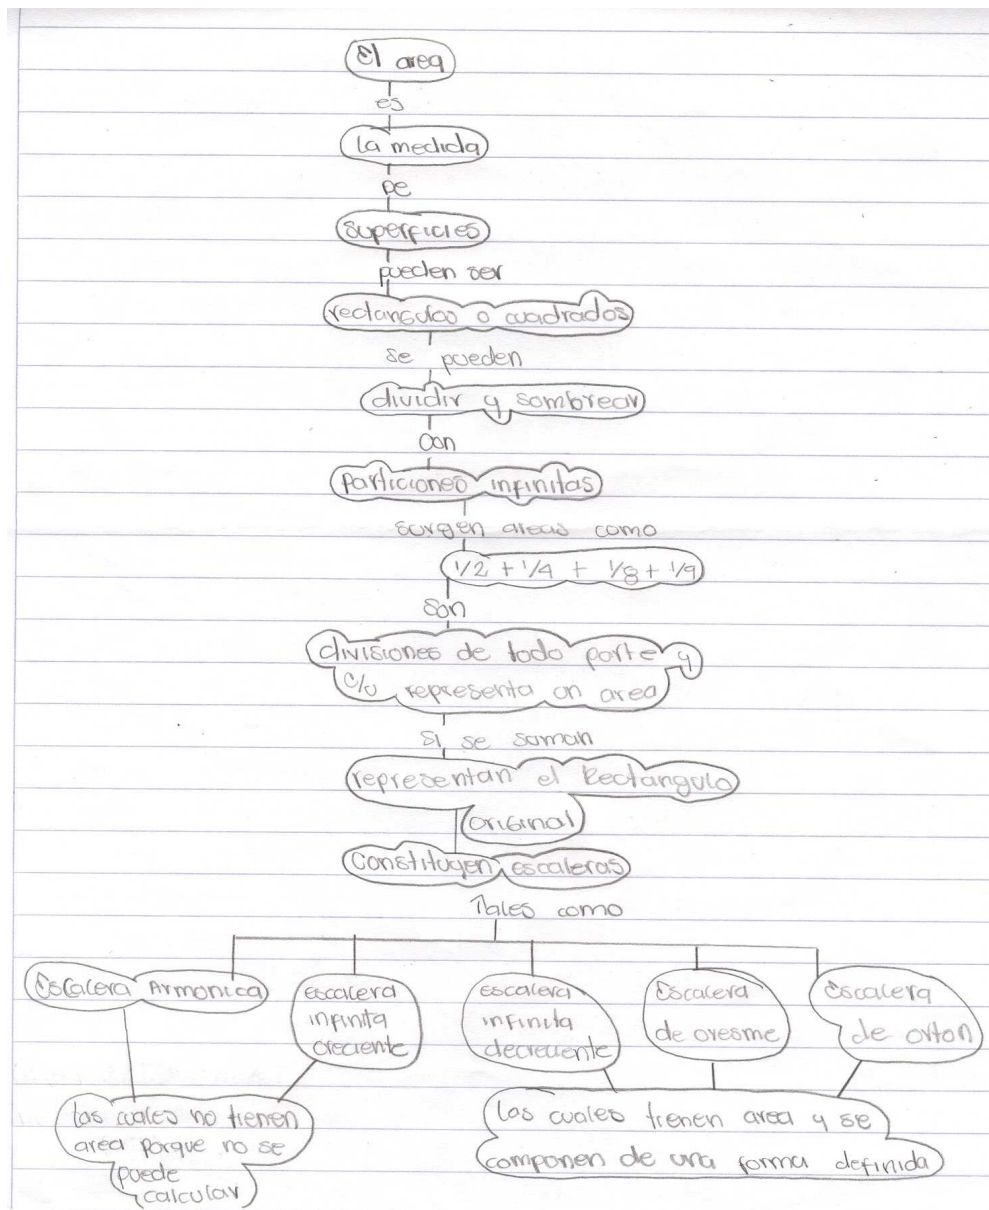 El area
es
la medida
De
superficies
pueden ser
rectangulos o cuadrados
se pueden
dividir y sombrear
con
particiones infinitas
surgen areas como
1/2 + 1/4 + 1/8 + 1/9
son
divisiones de todo parte y
c/u representa un area
si se suman
representan el Rectangulo
original
Constituyen escaleras
Tales como
Escalera Armonica
escalera
infinita
creciente
escalera
infinita
decreciente
Escalera
de oresme
Escalera
de orton
las cuales no tienen
area porque no se
puede
calcular
las cuales tienen area y se
componen de una forma definida